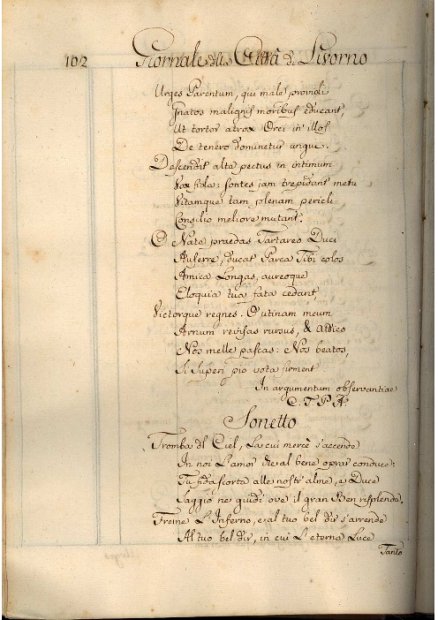 102 Giornale della Città di Livorno
Urges Parentum, qui male providi
Gnatos malignis moribus educant,
Ut tortor atrox Orci in illos
De tenero dominetur ungue.
Descendit alta pectus in intimum
Vox ista: fontes jam trepidant metu
Vitamque tam plenam pericli
Consilio meliore mutant.
O Nata praedas Tartareo Duci
Auferre, ducat Parca Tibi colos
Amica Longas, aureoque
Eloquia tua fata cedant,
Victorque regnes. O utinam meum
Arnum revisas rursus, & Attico
Nos melle pascas: Nos beatos,
Si Superi pio vota firment
In argumentum observantiae
C. T. P. A.
Sonetto
Tromba del Ciel, La cui mercè s'accende
In noi L'amor che al bene oprar conduce;
Tu fida scorta alle nostr'alme, e Duce
Saggio ne guidi ove il gran Ben risplende.
Freme L'Inferno, e al tuo bel dir s'arrende
Al tuo bel dir, in cui L'eterna Luce
Tanto